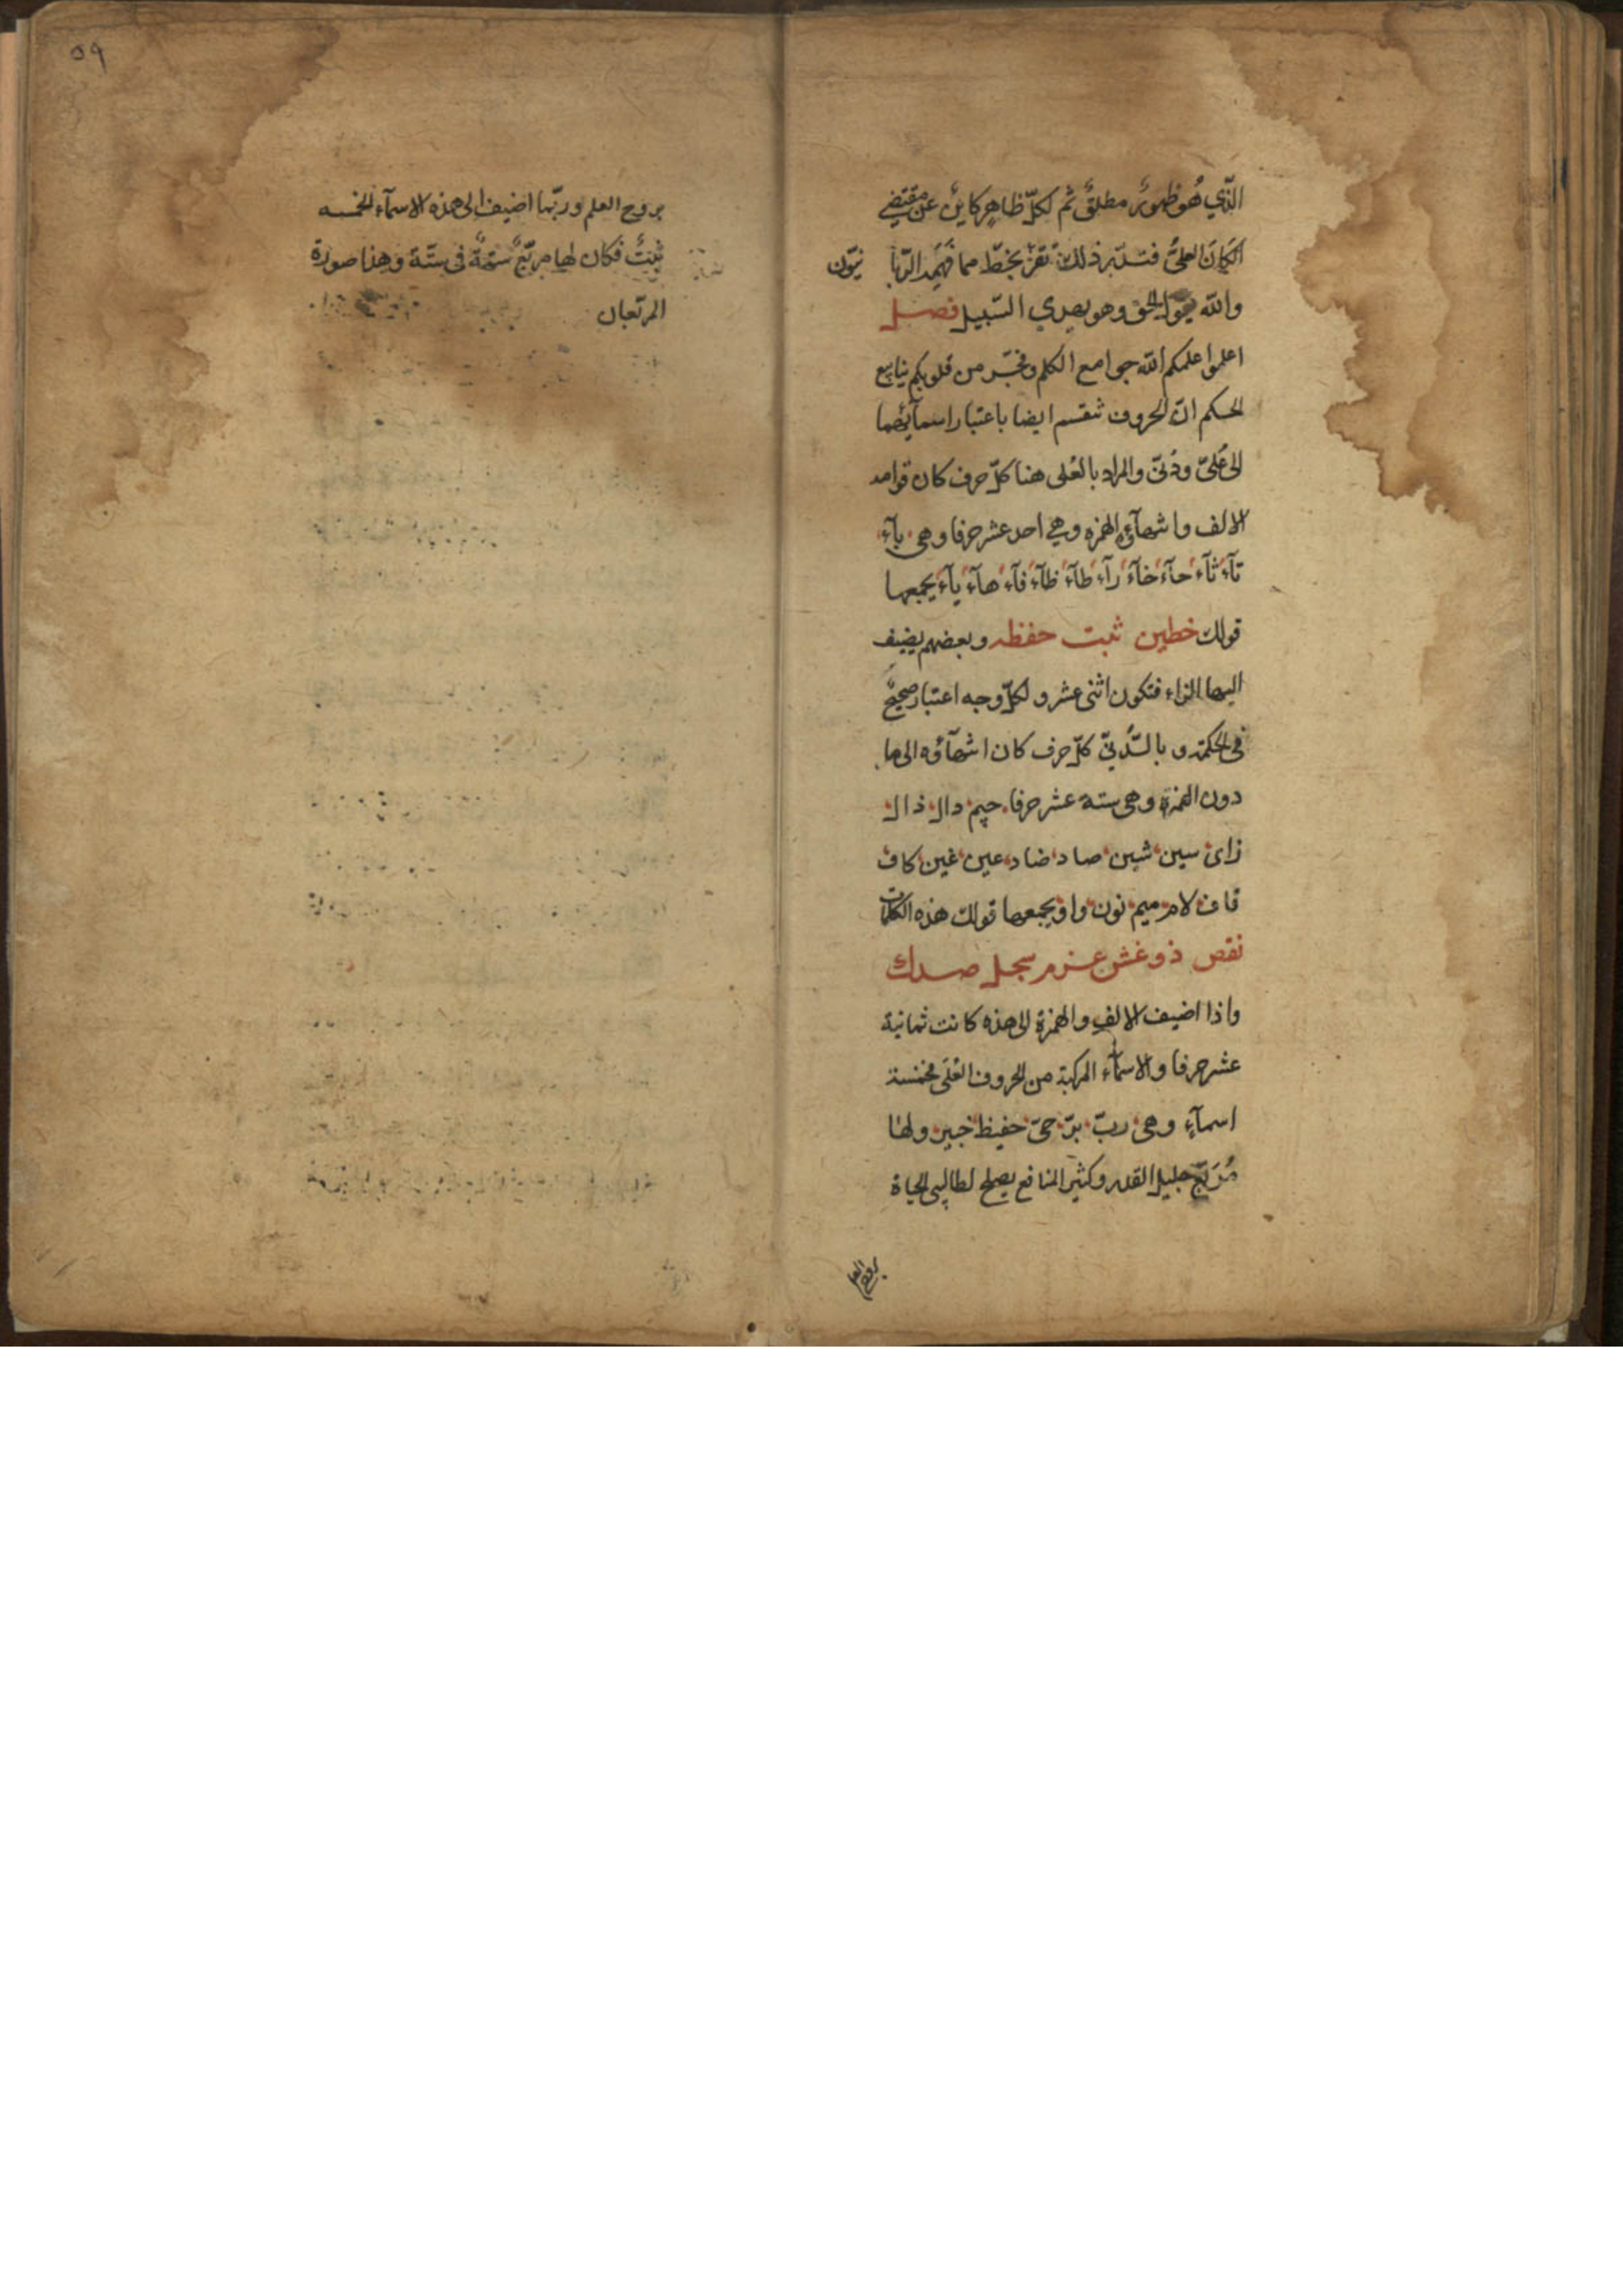 الّذي هُو ظهورٌ مطلقٌ ثم لكلّ ظاهرٍ كاينٌ عن مقتضى
الكيان العليُّ فتدبّر ذلك تفز بخطّ مما فهمه الرّبا نيّون
والله يقول الحق وهو يهدي السّبيل فصل
اعلموا علمكم الله جوامع الكلم وفجّر من قلوبكم ينابيع
الحكم انّ الحروف تنقسم ايضا باعتبار اسمآئها
الى عُلىّ ودُنىّ والمراد بالعُلى هنا كلّ حرف كان قوامه
الالف وانتهآؤه الهمزه وهي احد عشر حرفا وهى بآء
تآء ثآء حآء خآء رآء طآء ظآء فآء هآء يآء يجمعها
قولك خطين ثبت حفظه وبعضهم يضيف
اليها الزاء فتكون اثنى عشر ولكلّ وجه اعتبار صحيحٌ
فى الحكمة وبالدُّنىّ كلّ حرف كان انتهآؤه الى ما
دون الهمزة وهى ستة عشر حرفا جيم دال ذال
زاى سين شين صاد ضاد عين غين كاف
قاف لام ميم نون واو يجمعها قولك هذه الكلمات
نقص ذو غش عزم سجل صدك
واذا اضيف الالف والهمزة الى هذه كانت ثمانية
عشر حرفا والاسمآء المركبة من الحروف العُلى خمسة
اسمآءٍ وهى ربّ برّ حىّ حفيظ خبير ولها
مُرَبّع جليل القدر وكثير المنافع يصلح لطالبى الحياة
بروح العلم
٥٩
بروح العلم وربّها اضيف الى هذه الاسمآء الخمسه
ثبتٌ فكان لها مربّعٌ ستةٌ فى ستّة وهذا صورة
المربّعان